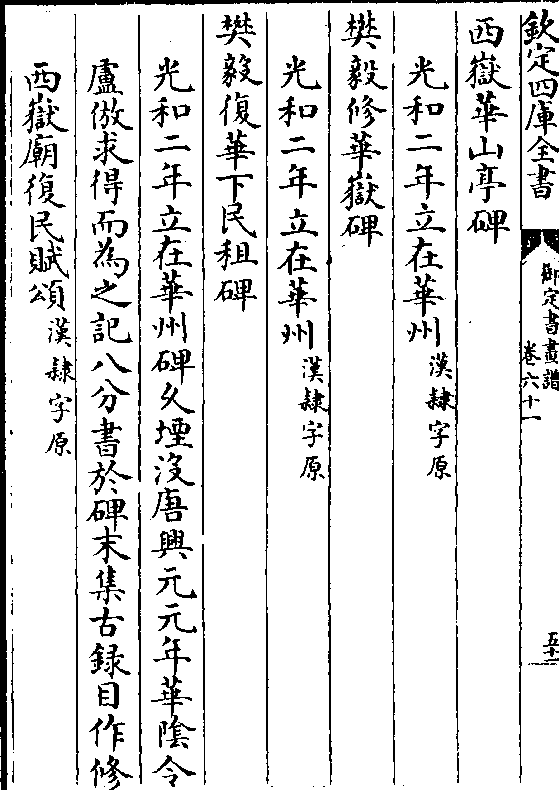 欽定四庫全書
御定書畫譜
卷六十一
西嶽華山亭碑
光和二年立在華州漢隸字原
樊毅修華嶽碑
光和二年立在華州漢隸字原
樊毅復華下民租碑
光和二年立在華州碑久堙沒唐興元元年華隂令
盧倣求得而為之記八分書於碑末集古録目作修
西嶽廟復民賦頌漢隸字原